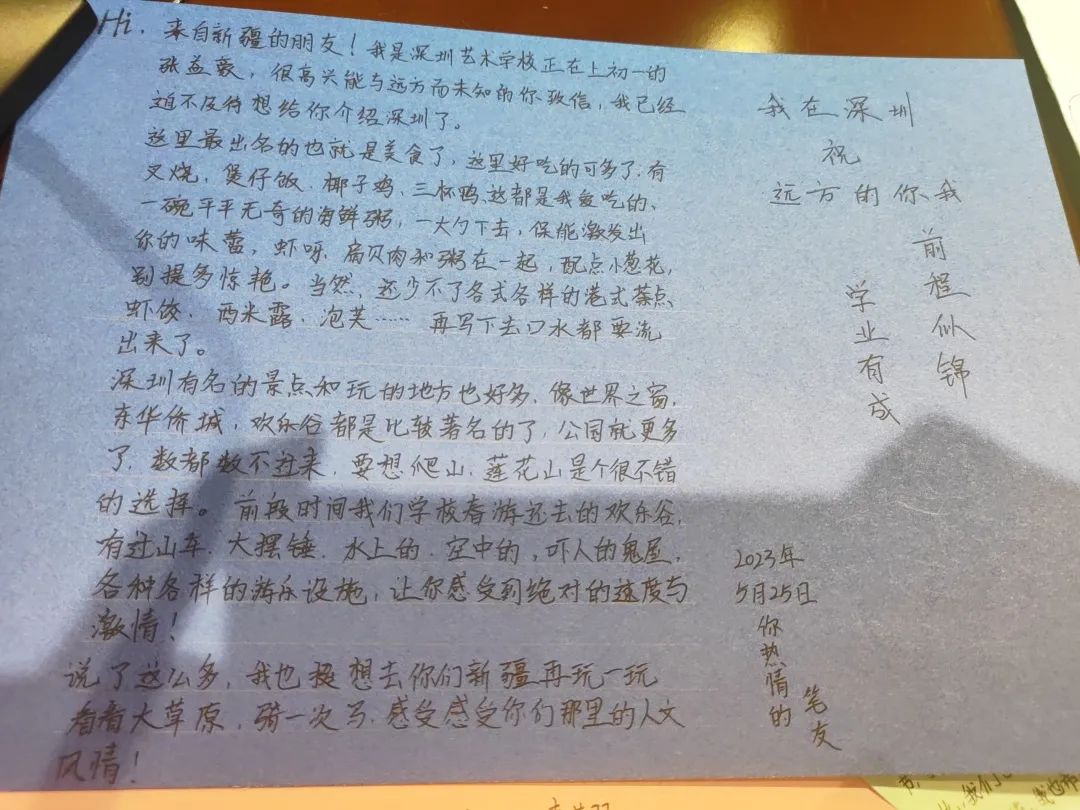 Hi，来自新疆的朋友！我是深圳艺术学校正在上初一的
张益，很高兴能与远方而未知的你致信，我已经
迫不及待想给你介绍深圳了。
这里最出名的也就是美食了，这里好吃的可多了，有
叉烧、煲仔饭、椰子鸡、三杯鸭，这都是我爱吃的、
一碗平平无奇的海鲜粥，一大勺下去，保能激发出
你的味蕾，虾呀，扇贝肉和粥在一起，配点小葱花，
别提多惊艳。当然，还少不了各式各样的港式茶点，
虾饺、西米露、泡芙……再写下去口水都要流
出来了。
深圳有名的景点和玩的地方也好多，像世界之窗，
东华侨城，欢乐谷都是比较著名的了，公园就更多
了，数都数不过来，要想爬山，莲花山是个很不错
的选择。前段时间我们学校春游还去的欢乐谷，
有过山车、大摆锤、水上的、空中的，吓人的鬼屋，
各种各样的游乐设施，让你感受到绝对的速度与
激情！
说了这么多，我也挺想去你们新疆再玩一玩
看看大草原，骑一次马，感受感受你们那里的人文
风情！
我在深圳
祝
远方的你我
前程似锦
学业有成
2023年
5月25日
你热情的
笔友